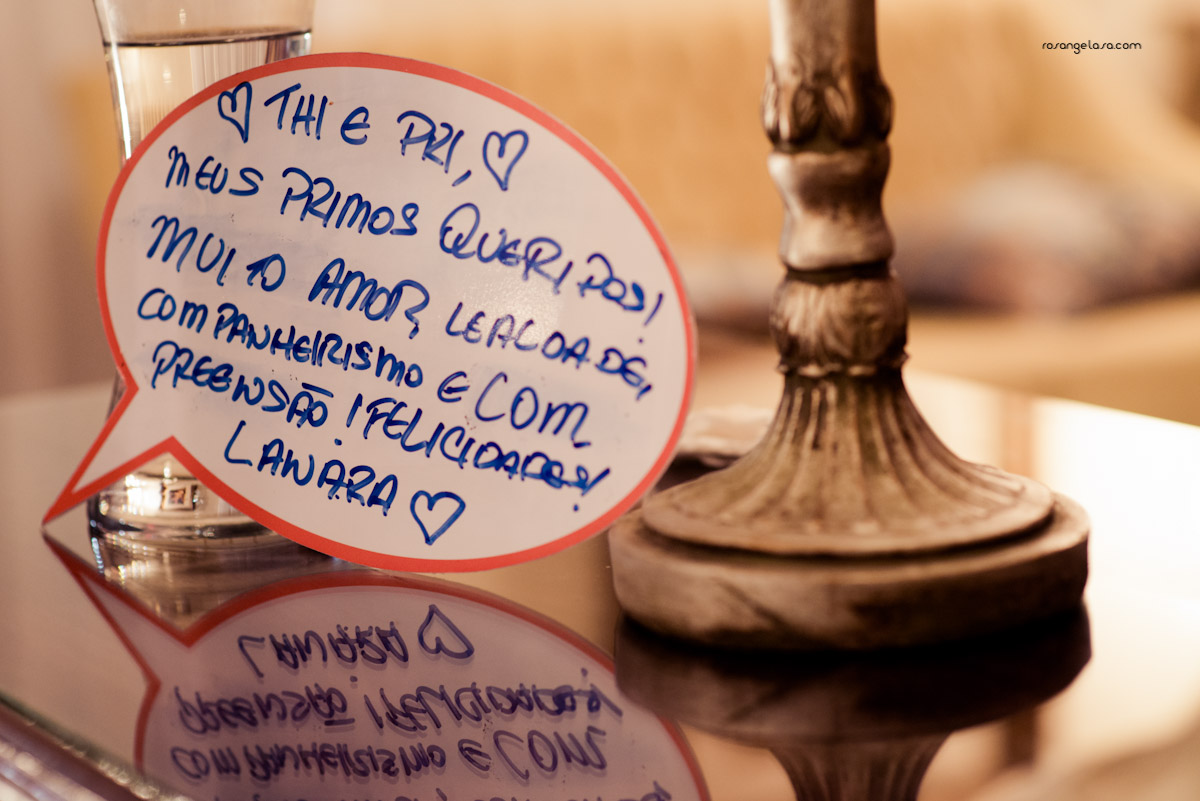 rosangelasa.com
♡ THI E PRI, ♡
MEUS PRIMOS QUERIDOS!
MUITO AMOR, LEALDADE,
COMPANHEIRISMO E COM
PREENSÃO! FELICIDADES!
LAWARA ♡